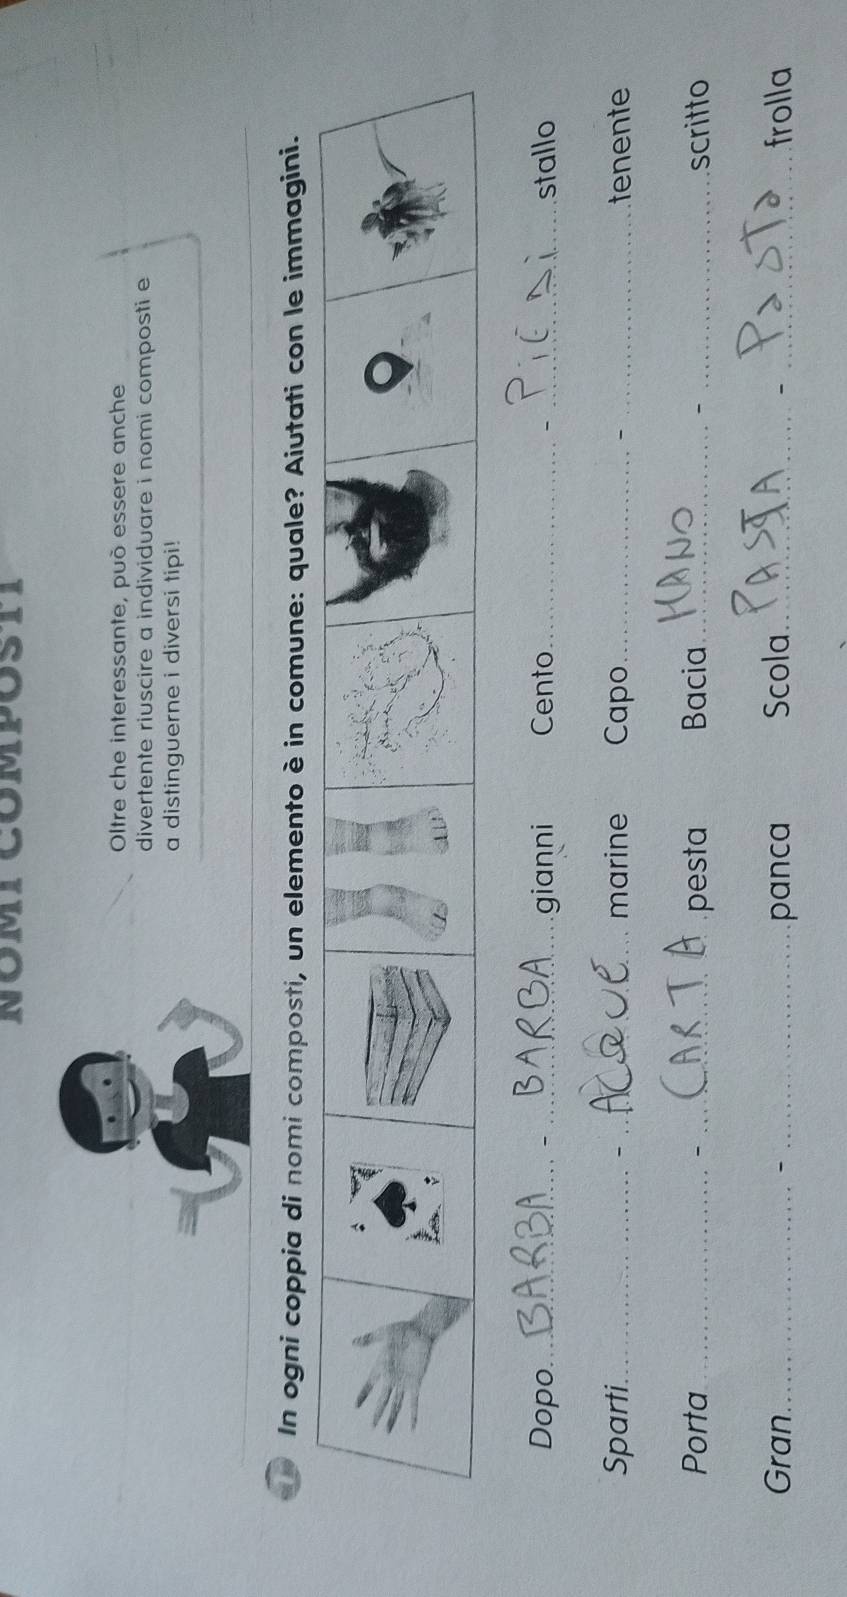 NOMI COMPOSTI
Oltre che interessante, può essere anche
divertente riuscire a individuare i nomi composti e
a distinguerne i diversi tipi!
In ogni coppia di nomi composti, un elemento è in comune: quale? Aiutati con le immagini.
Dopo BARBA - BARBA gianni Cento - PiEDi stallo
Sparti - ACQUE marine Capo - tenente
Porta - CARTA pesta Bacia MANO - scritto
Gran - panca Scola PASTA - PaSTa frolla